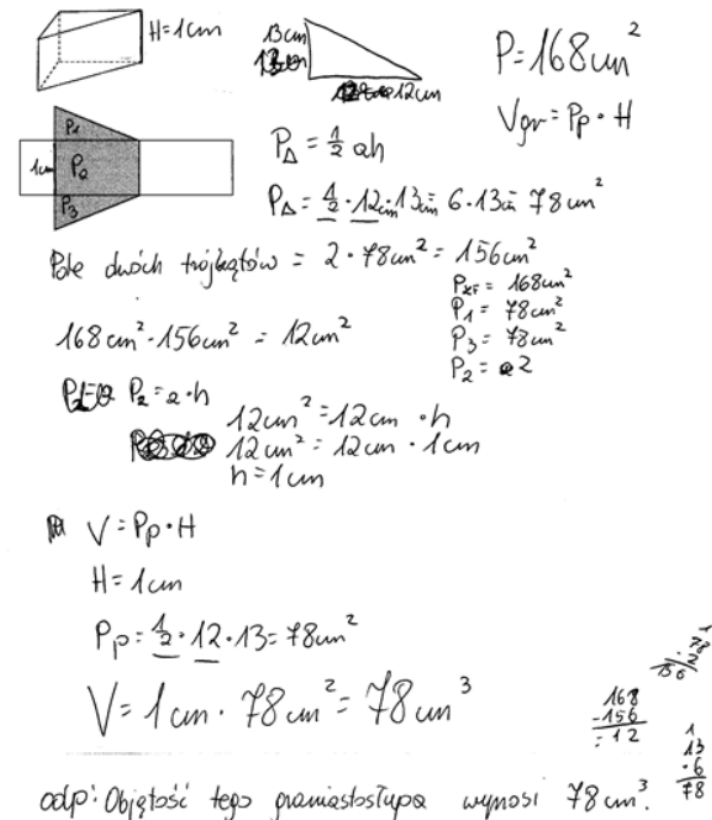 H=1cm
13cm
12cm
P=168cm²
Vgr=Pp·H
P1
1cm
P2
P3
P△=½ah
P△=½·12cm·13cm=6·13cm=78cm²
Pole dwóch trójkątów = 2·78cm²=156cm²
168cm²-156cm²=12cm²
P1=78cm²
P3=78cm²
P2=a·h
12cm²=12cm·h
12cm²=12cm·1cm
h=1cm
V=Pp·H
H=1cm
Pp=½·12·13=78cm²
V=1cm·78cm²=78cm³
1
78
·2
156
168
-156
=12
1
13
·6
78
odp: Objętość tego graniastosłupa wynosi 78cm³.